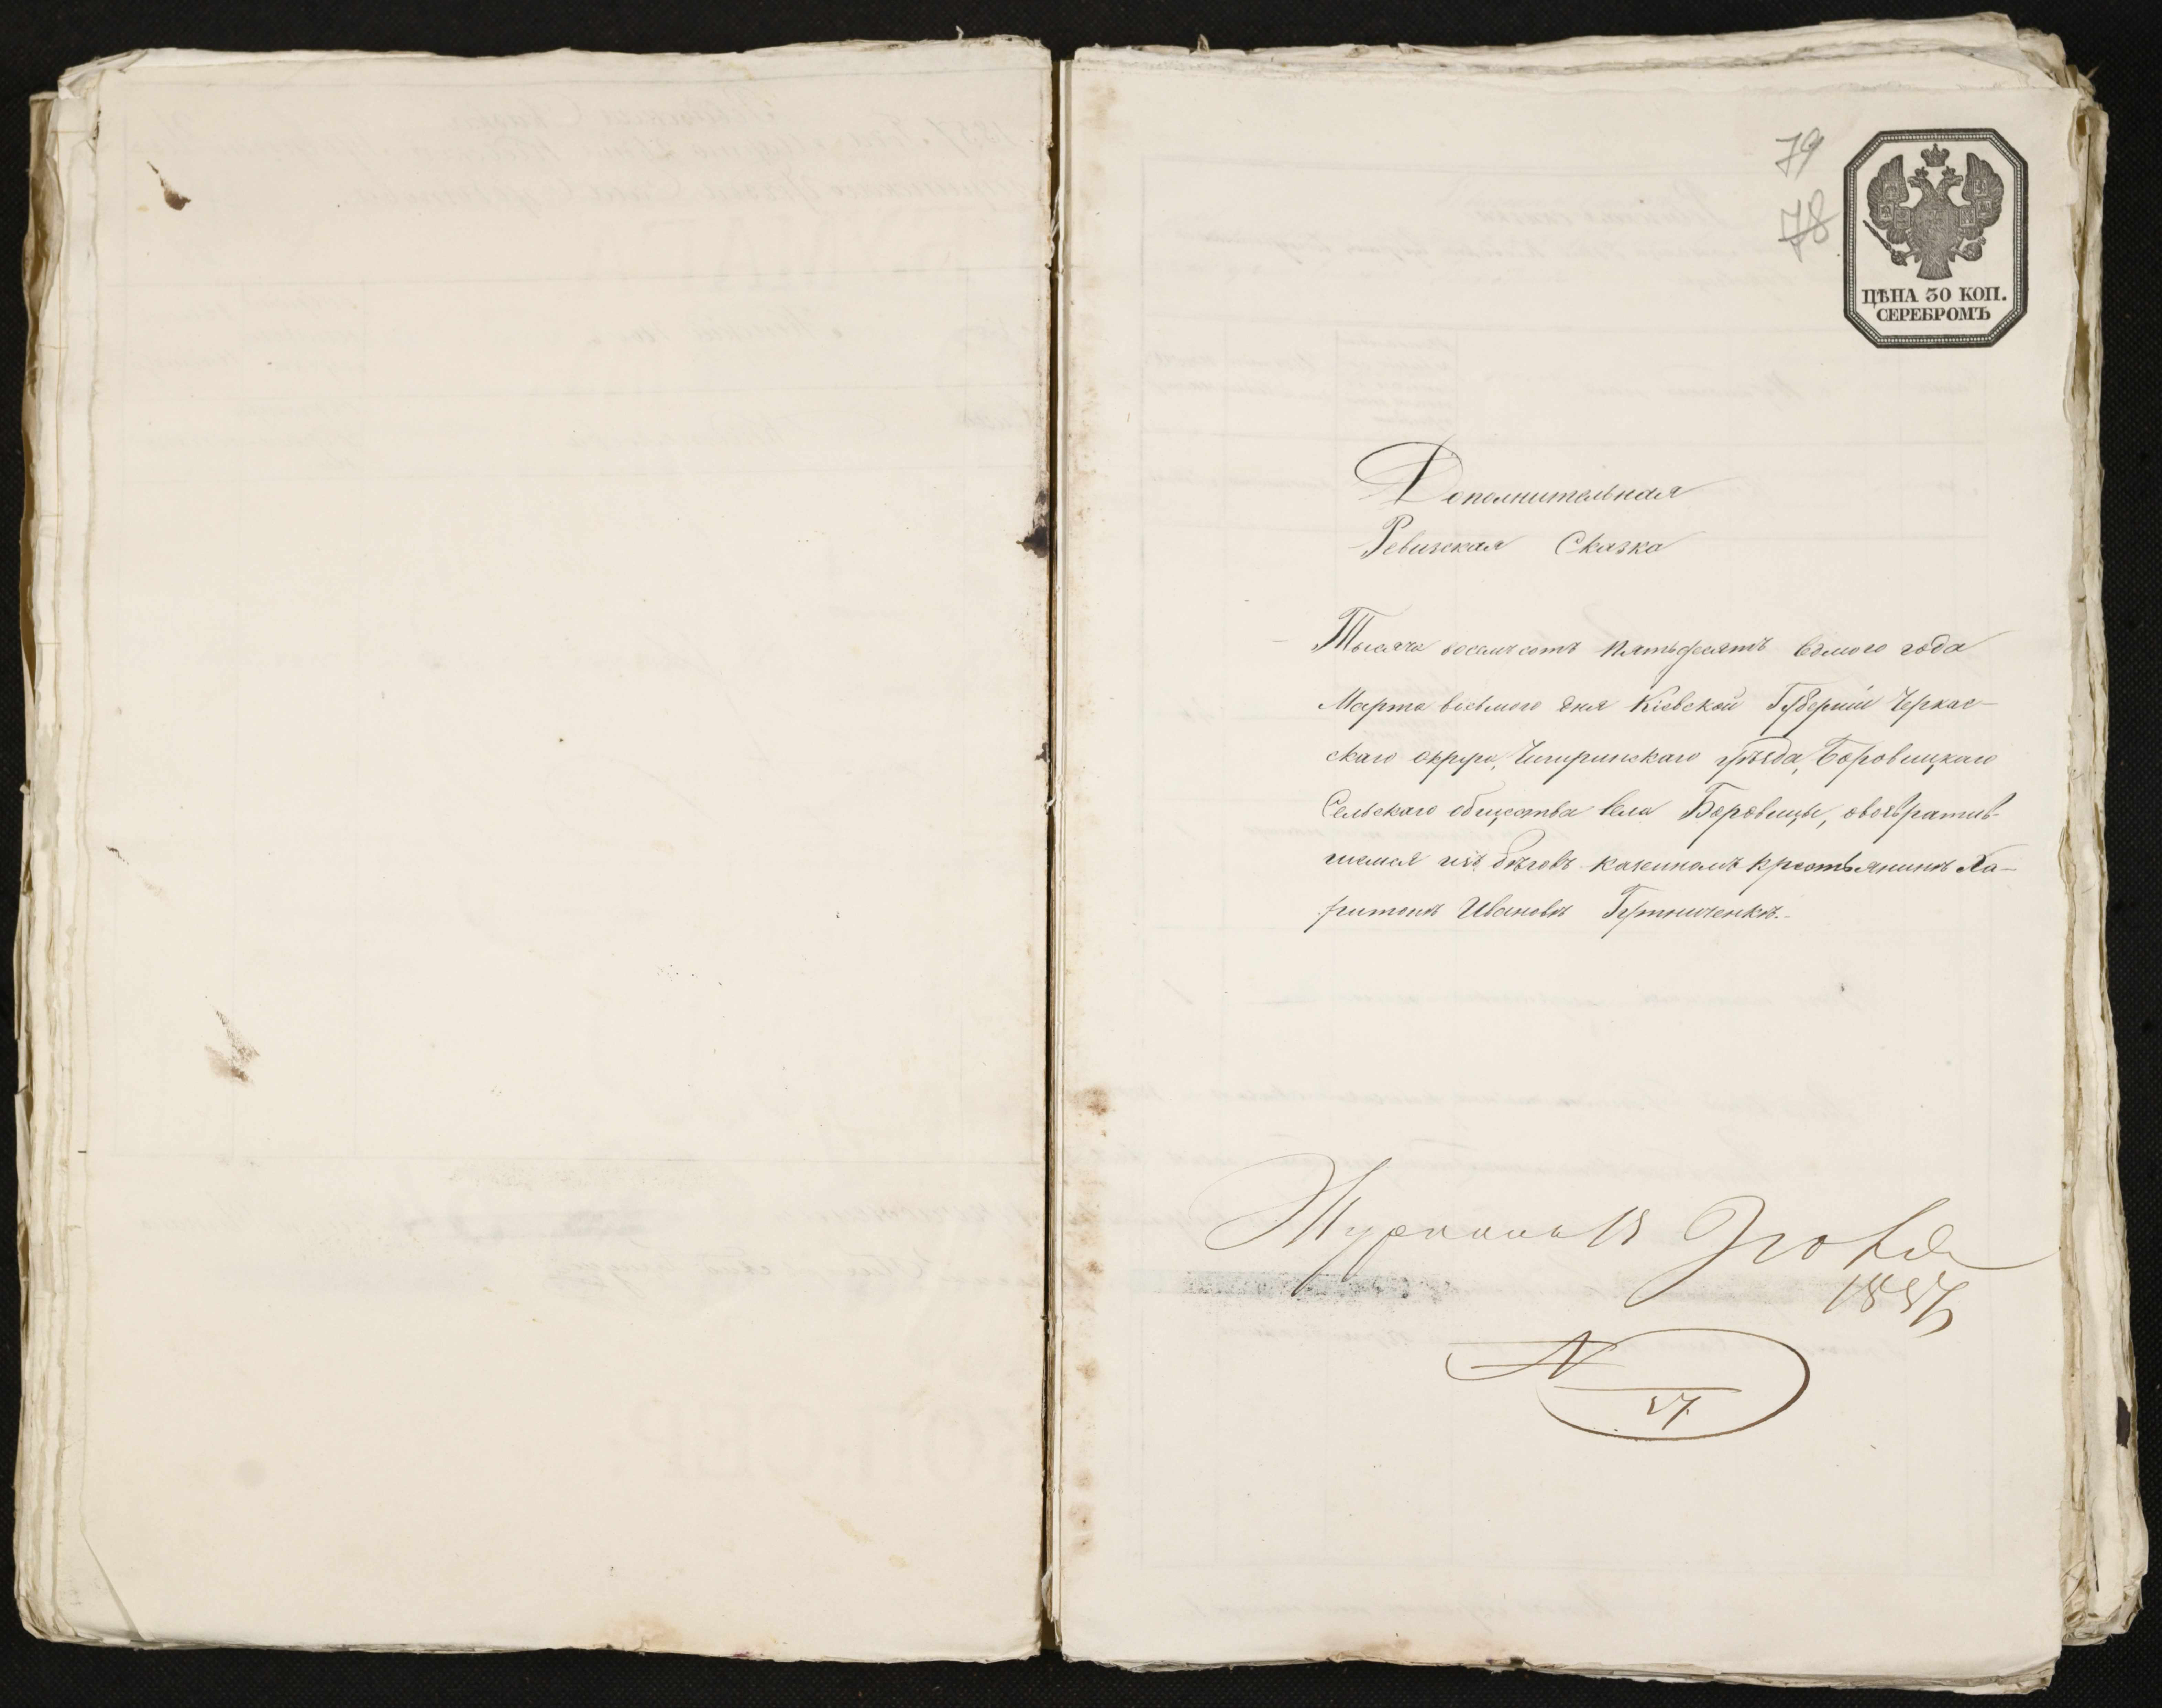 79
78
ЦѢНА 30 КОП.
СЕРЕБРОМЪ
Дополнительная
Ревизская Сказка
Тысяча восемь сотъ пятьдесятъ седмого года
Марта восьмого дня Кіевской Губерніи Черкас-
скаго округа, Чигринскаго уѣзда, Боровицкаго
Сельскаго общества села Боровицы, о возвратив-
шемся изъ бѣговъ казенномъ крестьянинѣ Ха-
ритонѣ Ивановѣ Гутниченкѣ.
1857
N
57.